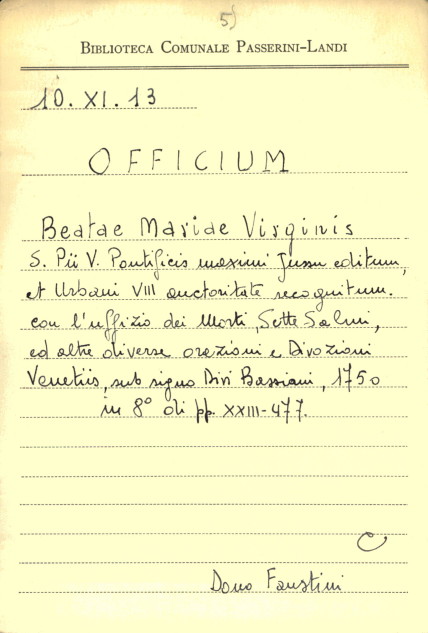 5)
BIBLIOTECA COMUNALE PASSERINI-LANDI
10. XI. 13
OFFICIUM
Beatae Mariae Virginis
S. Pii V. Pontificis maximi Jussu editum,
et Urbani VIII auctoritate recognitum.
con l'uffizio dei Morti, Sette Salmi,
ed altre diverse orazioni e Divozioni
Venetiis, sub signo Divi Bassiani, 1750
in 8° di pp. XXIII-477.
C
Dono Faustini